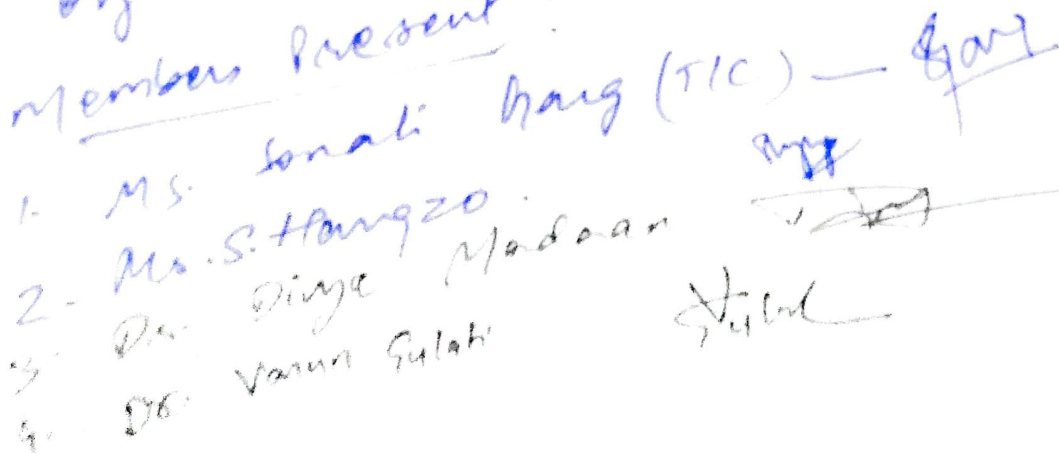 Members Present
1. Ms. Sonali Garg (TIC) —
2. Mr. S. Hangzo
3. Dr. Divya Madaan
4. Dr. Varun Gulati